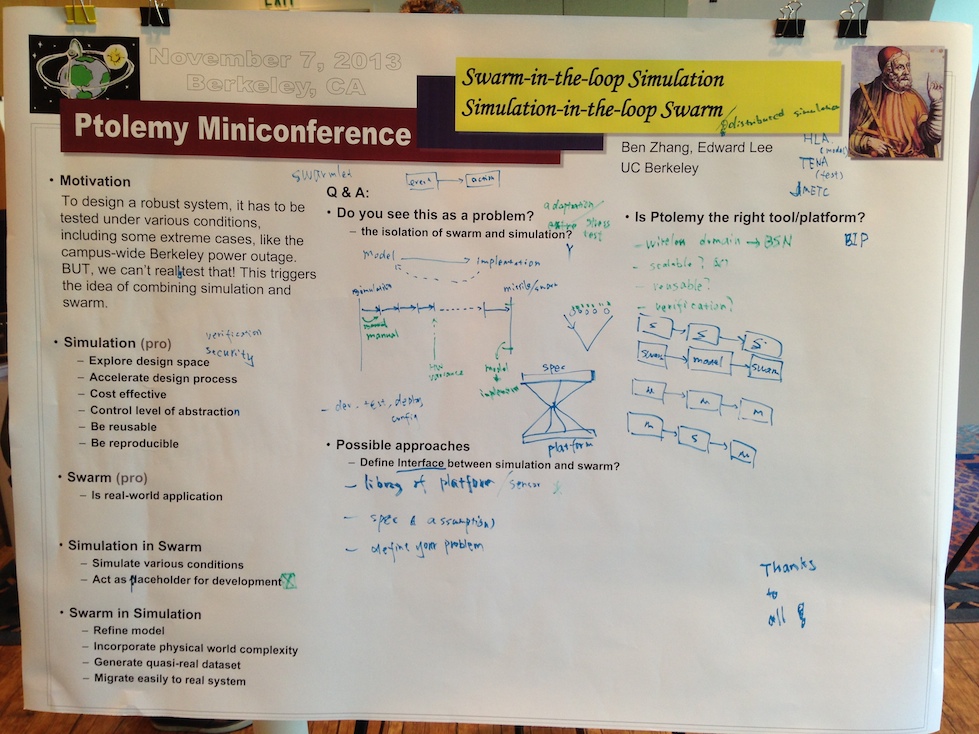 EXIT
November 7, 2013
Berkeley, CA
Ptolemy Miniconference
Swarm-in-the-loop Simulation
Simulation-in-the-loop Swarm
distributed simulation
Ben Zhang, Edward Lee
UC Berkeley
HLA
(model)
TENA
(test)
JMETC
• Motivation
To design a robust system, it has to be
tested under various conditions,
including some extreme cases, like the
campus-wide Berkeley power outage.
BUT, we can't really test that! This triggers
the idea of combining simulation and
swarm.
• Simulation (pro)
verification
security
– Explore design space
– Accelerate design process
– Cost effective
– Control level of abstraction
– Be reusable
– Be reproducible
• Swarm (pro)
– Is real-world application
• Simulation in Swarm
– Simulate various conditions
– Act as placeholder for development
• Swarm in Simulation
– Refine model
– Incorporate physical world complexity
– Generate quasi-real dataset
– Migrate easily to real system
swarmlet
event
action
Q & A:
• Do you see this as a problem?
adaptation
stress
test
– the isolation of swarm and simulation?
model
implementation
simulation
manual
HW
variance
model
implement
spec
platform
– dev. test, deploy,
config
• Possible approaches
– Define Interface between simulation and swarm?
– library of platform / sensor
– spec & assumptions
– define your problem
• Is Ptolemy the right tool/platform?
– wireless domain → BSN
BIP
– scalable?
– reusable?
– verification?
S
S
S
swarm
model
swarm
M
M
M
M
S
M
Thanks
to
all